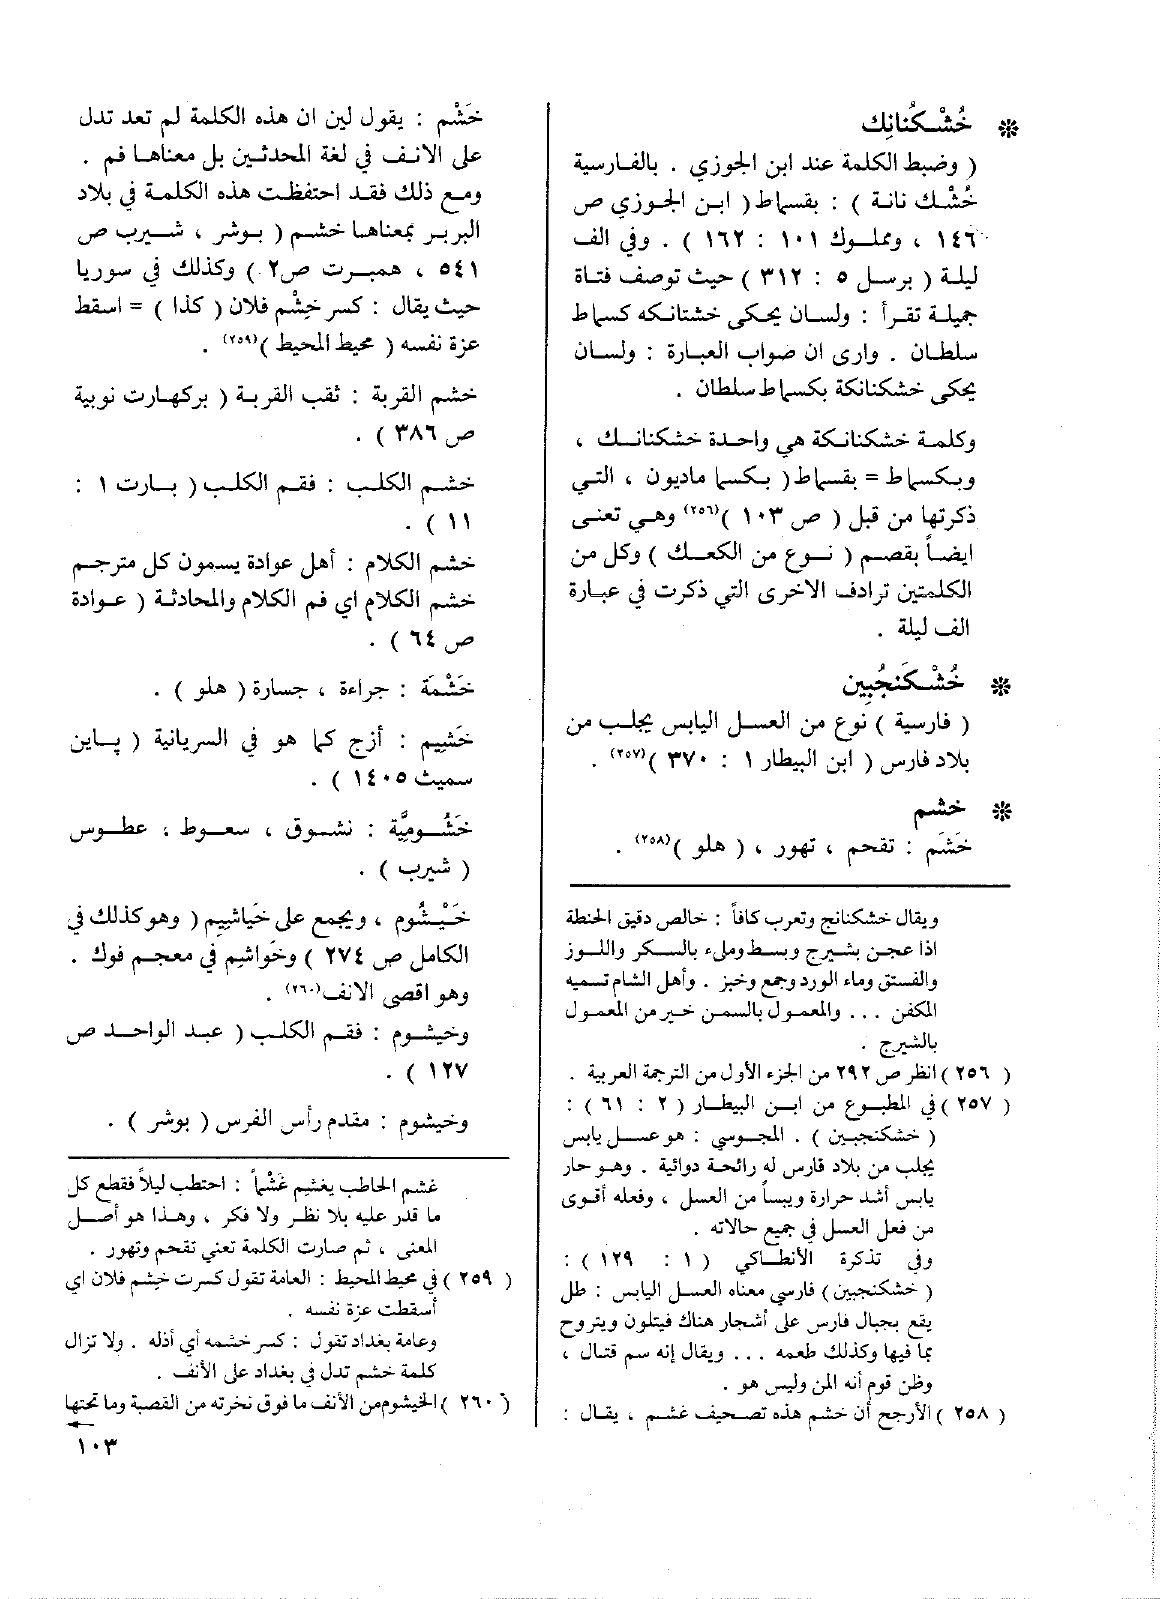 ❊ خُشْكُنانِك
( وضبط الكلمة عند ابن الجوزي . بالفارسية
خُشْك نانة ) : بقسماط ( ابن الجوزي ص
١٤٦ ، ومملوك ١٠١ : ١٦٢ ) . وفي الف
ليلة ( برسل ٥ : ٣١٢ ) حيث توصف فتاة
جميلة تقرأ : ولسان يحكى خشتانكه كسماط
سلطان . وارى ان صواب العبارة : ولسان
يحكى خشكنانكة بكسماط سلطان .
وكلمة خشكنانكة هي واحدة خشكنانك ،
وبكسماط = بقسماط ( بكسما ماديون ، التي
ذكرتها من قبل ( ص ١٠٣ )(٢٥٦) وهي تعنى
ايضاً بقصم ( نوع من الكعك ) وكل من
الكلمتين ترادف الاخرى التي ذكرت في عبارة
الف ليلة .
❊ خُشْكَنجُبِين
( فارسية ) نوع من العسل اليابس يجلب من
بلاد فارس ( ابن البيطار ١ : ٣٧٠ )(٢٥٧) .
❊ خشم
خَشَم : تقحم ، تهور ، ( هلو )(٢٥٨) .
ويقال خشكنانج وتعرب كافاً : خالص دقيق الحنطة
اذا عجن بشيرج وبسط وملء بالسكر واللوز
والفستق وماء الورد وجمع وخبز . وأهل الشام تسميه
المكفن ... والمعمول بالسمن خير من المعمول
بالشيرج .
( ٢٥٦ ) انظر ص ٢٩٢ من الجزء الأول من الترجمة العربية .
( ٢٥٧ ) في المطبوع من ابن البيطار ( ٢ : ٦١ ) :
( خشكنجبين ) . المجوسي : هو عسل يابس
يجلب من بلاد فارس له رائحة دوائية . وهو حار
يابس أشد حرارة ويبساً من العسل ، وفعله أقوى
من فعل العسل في جميع حالاته .
وفي تذكرة الأنطاكي ( ١ : ١٢٩ ) :
( خشكنجبين ) فارسي معناه العسل اليابس : طل
يقع بجبال فارس على أشجار هناك فيتلون ويتروح
بما فيها وكذلك طعمه ... ويقال إنه سم قتال ،
وظن قوم أنه المن وليس هو .
( ٢٥٨ ) الأرجح أن خشم هذه تصحيف غشم ، يقال :
خَشْم : يقول لين ان هذه الكلمة لم تعد تدل
على الانف في لغة المحدثين بل معناها فم .
ومع ذلك فقد احتفظت هذه الكلمة في بلاد
البربر بمعناها خشم ( بوشر ، شيرب ص
٥٤١ ، همبرت ص٢ ) وكذلك في سوريا
حيث يقال : كسر خِشْم فلان ( كذا ) = اسقط
عزة نفسه ( محيط المحيط )(٢٥٩) .
خشم القربة : ثقب القربة ( بركهارت نوبية
ص ٣٨٦ ) .
خشم الكلب : فقم الكلب ( بارت ١ :
١١ ) .
خشم الكلام : أهل عوادة يسمون كل مترجم
خشم الكلام اي فم الكلام والمحادثة ( عوادة
ص ٦٤ ) .
خَشْمَة : جراءة ، جسارة ( هلو ) .
خَشِيم : أزج كما هو في السريانية ( پاين
سميث ١٤٠٥ ) .
خَشُومِيَّة : نشوق ، سعوط ، عطوس
( شيرب ) .
خَيْشُوم ، ويجمع على خَياشِيم ( وهو كذلك في
الكامل ص ٢٧٤ ) وخَواشِم في معجم فوك .
وهو اقصى الانف(٢٦٠) .
وخيشوم : فقم الكلب ( عبد الواحد ص
١٢٧ ) .
وخيشوم : مقدم رأس الفرس ( بوشر ) .
غشم الحاطب يغشِم غَشْماً : احتطب ليلاً فقطع كل
ما قدر عليه بلا نظر ولا فكر ، وهذا هو أصل
المعنى ، ثم صارت الكلمة تعني تقحم وتهور .
( ٢٥٩ ) في محيط المحيط : العامة تقول كسرت خِشم فلان اي
أسقطت عزة نفسه .
وعامة بغداد تقول : كسر خشمه أي أذله . ولا تزال
كلمة خشم تدل في بغداد على الأنف .
( ٢٦٠ ) الخيشوم من الأنف ما فوق نخرته من القصبة وما تحتها
١٠٣